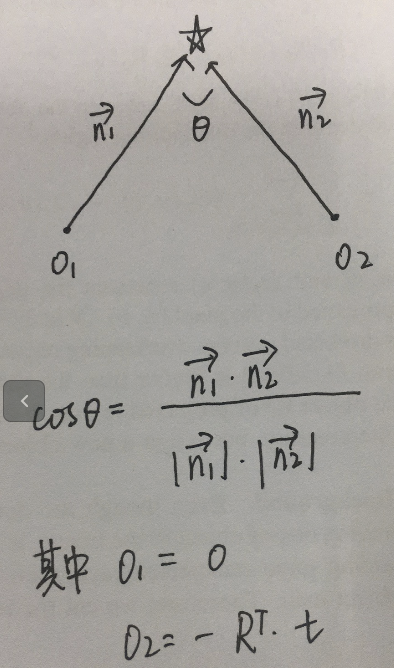 n₁⃗ θ n₂⃗
O₁ O₂
cosθ = n₁⃗ · n₂⃗ / |n₁⃗| · |n₂⃗|
其中 O₁ = 0
O₂ = - Rᵀ · t